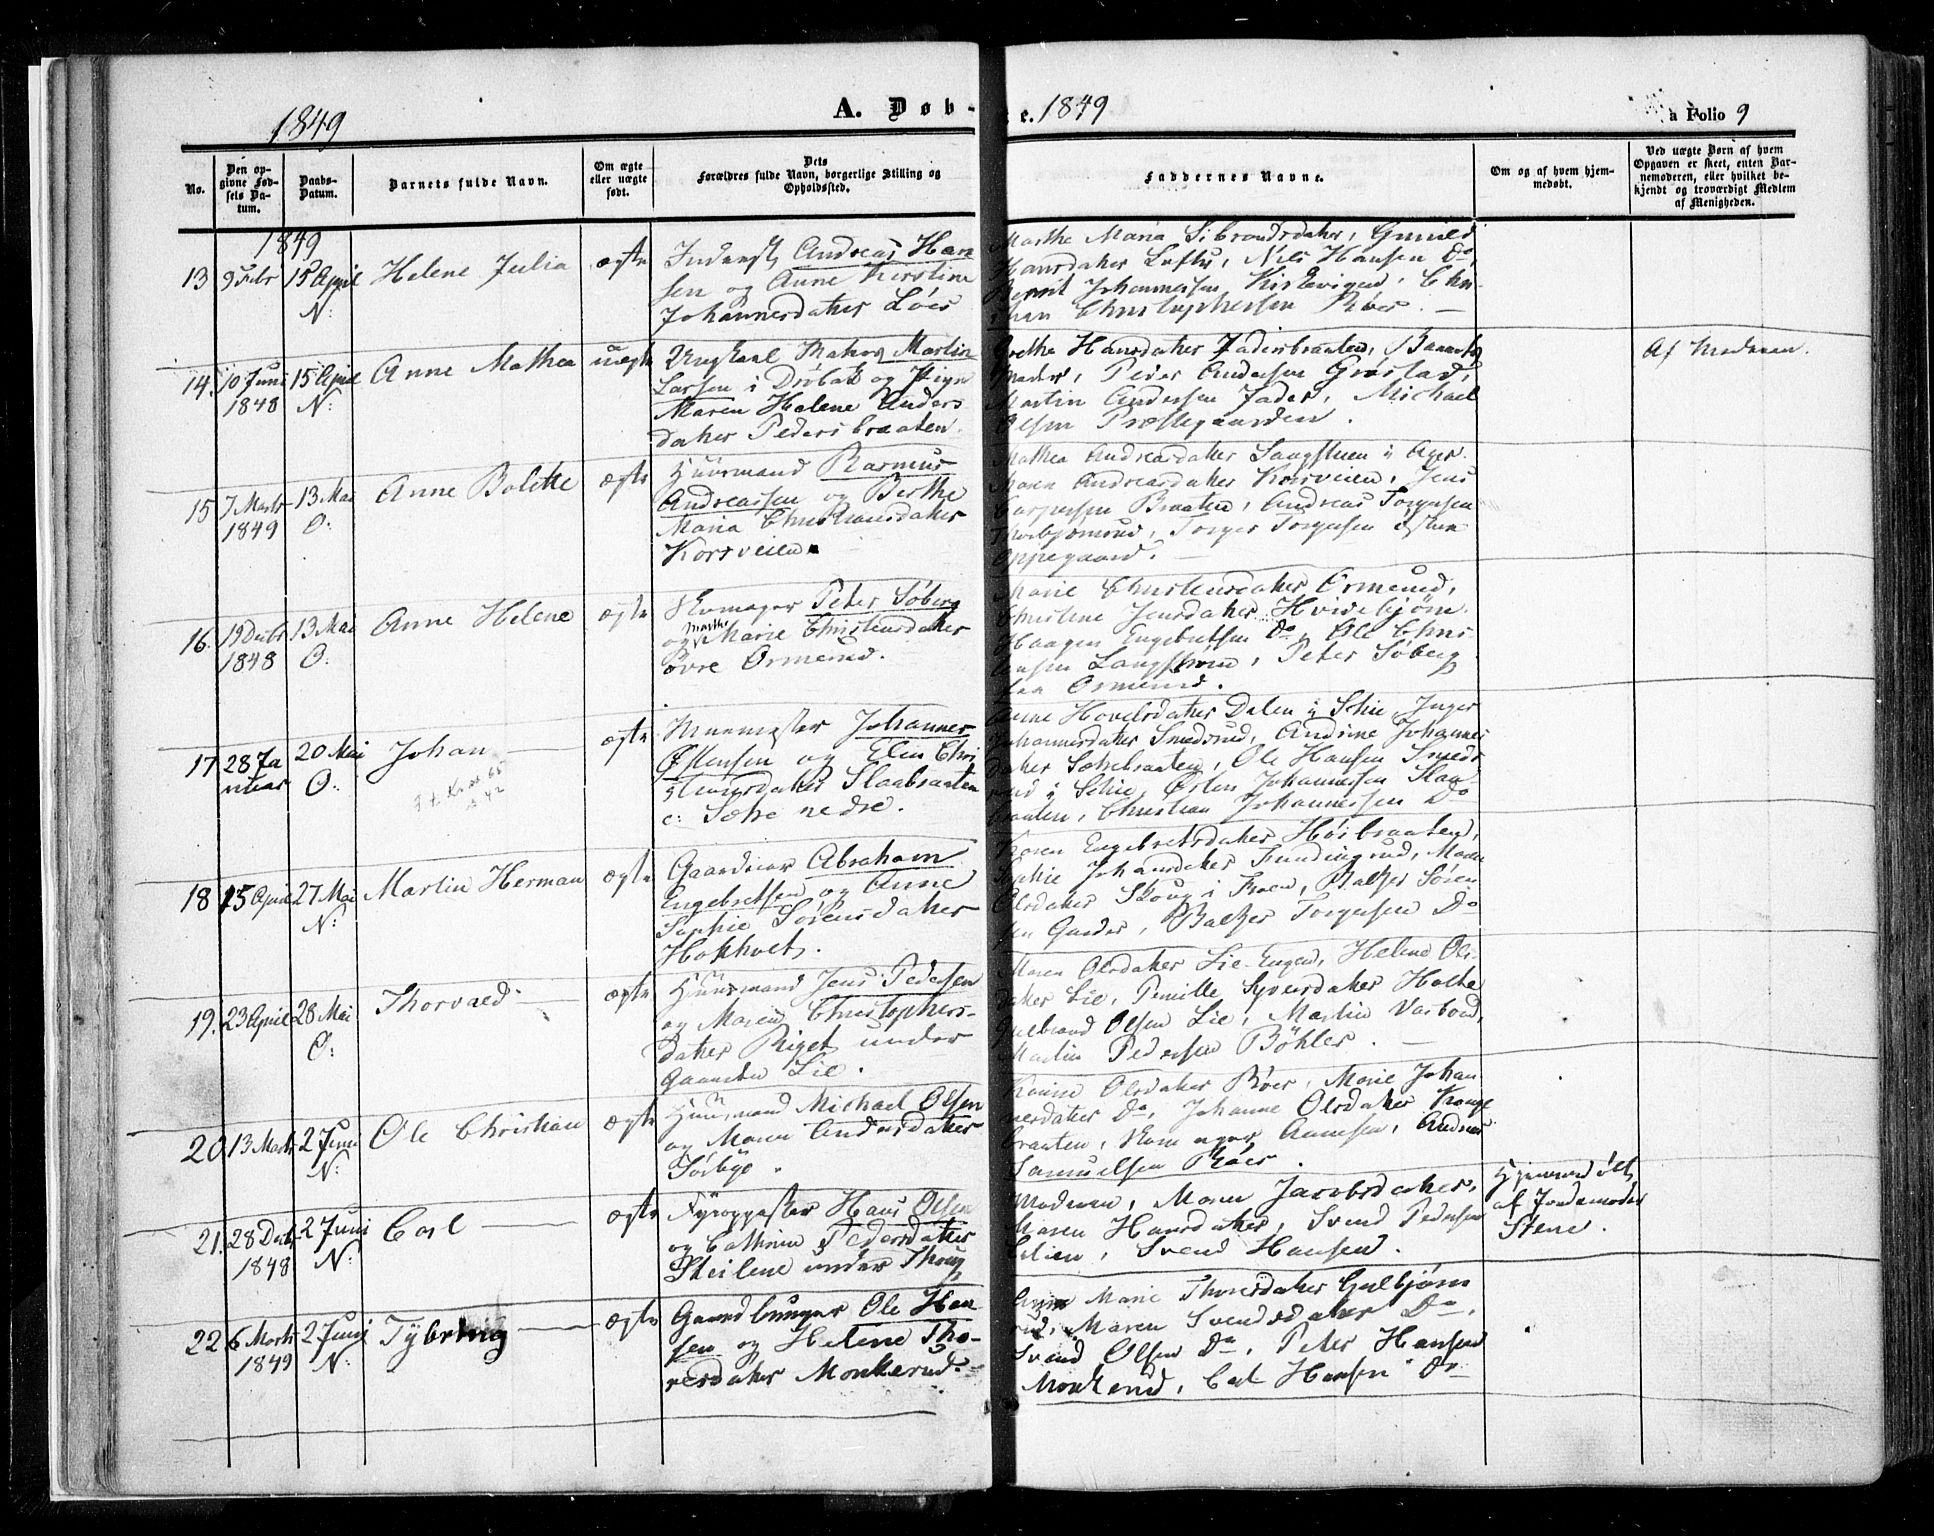 1849
A. Døb-
e. 1849
a Folio 9
No.
Den op-
givne Fød-
sels Da-
tum.
Daabs-
Datum.
Barnets fulde Navn.
Om ægte
eller uægte
født.
Dets
Forældres fulde Navn, borgerlige Stilling og
Opholdssted.
Faddernes Navne.
Om og af hvem hjem-
medøbt.
Ved uægte Børn af hvem
Opgaven er skeet, enten Bar-
nemoderen, eller hvilket be-
kjendt og troværdigt Medlem
af Menigheden.
1849
13
9 Febr
15 April
N:
Helene Julia
ægte
Inderst Andreas Han
sen og Anne Kirstine
Johannesdatter Löes
Marthe Maria Sibrandsdatter, Gunild
Hansdatter Lofts, Nils Hansen Do,
Bernt Johannesen Kistevigen, Chri-
stian Christophersen Röer. —
14.
10 Juni
1848
15 April
N:
Anne Mathea
uægte
Ungkarl Matros Martin
Larsen i Dröbak og Pigen
Maren Helene Anders
datter Pedersbraaten.
Grethe Hansdatter Pedersbraaten, Barnets
Moder, Peder Andersen Grøstad,
Martin Andersen Jader, Michael
Olsen Præstegaarden.
Af Moderen.
15
7 Marts
1849
13 Mai
O:
Anne Bolette
ægte
Huusmand Rasmus
Andreassen og Berthe
Maria Christiansdatter
Korsveien
Mathea Andreasdatter Langsteen i Ager
Maren Andreasdatter Korsveien, Jens
Caspersen Braaten, Andreas Torgersen
Thorbjörnrud, Torger Torgersen östre
Oppegaard. —
16.
19 Decbr
1848
13 Mai
O:
Anne Helene
ægte
Skomager Peter Söberg
og Marthe Marie Christensdatter
övre Ormerud.
Marie Christensdatter Ormerud,
Christine Jensdatter Hvidebjörn
Haagen Engebretsen Do, Ole Chris
tensen Langstrøm, Peter Söberg
Ormerud.
17
28 Ja
nuar
20 Mai
O:
Johan —
ægte
Muurmester Johannes
Østensen og Elen Chri
stensdatter Slaabraaten
e: Sætre nedre.
Anne Hovelsdatter Dalen i Schie, Inger
Johannesdatter Smedsrud, Andrine Johannes
datter Sætrebraaten, Ole Hansen Smeds
rud i Schie, Østen Johannesen Slaa
braaten, Christian Johannesen Do
18
15 April
27 Mai
N:
Martin Herman
ægte
Gaardeier Abraham
Engebretsen og Anne
Sophie Sörensdatter
Hokholt.
Karen Engebretsdatter Höibraaten,
Sophie Johansdatter Fundingrud, Maren
Olsdatter Skoug i Froen, Baltzer Sören
sen Garder, Baltzer Torgersen Do
19.
23 April
28 Mai
O:
Thorvald —
ægte
Huusmand Jens Pedersen
og Maren Christophers-
datter Riget under
Gaarden Lie.
Maren Olsdatter Lie-Engen, Helene Ols-
datter Lie, Pernille Syversdatter Holte
Gulbrand Olsen Lie, Martin Varboad,
Martin Pedersen Böhler. —
20
13 Marts
2 Juni
N:
Ole Christian
ægte
Huusmand Michael Olsen
og Maren Andersdatter
Sörbye.
Karine Olsdatter Röer, Marie Johan
nesdatter Do, Johanne Olsdatter Krange
braaten, Skomager Arnesen, Andreas
Samuelsen Röer.
21.
28 Decbr
1848
2 Juni
N:
Carl —
ægte
Fyropasser Hans Olsen
og Cathrine Pedersdatter
Steilene under Skoug
Moderen, Maren Jacobsdatter,
Maren Hansdatter, Svend Pedersen
Svend Hansen.
Hjemmedöbt
af Jordemoder
Stene.
22
6 Marts
1849
2 Juni
N:
Tybring —
ægte
Gaardbruger Ole Han
sen og Helene Tho-
resdatter Monkerud.
Anne Marie Thoresdatter Gulbjörn
rud, Maren Svendsdatter Do,
Svend Olsen Do, Peter Hansen
Monkerud, Carl Hansen Do